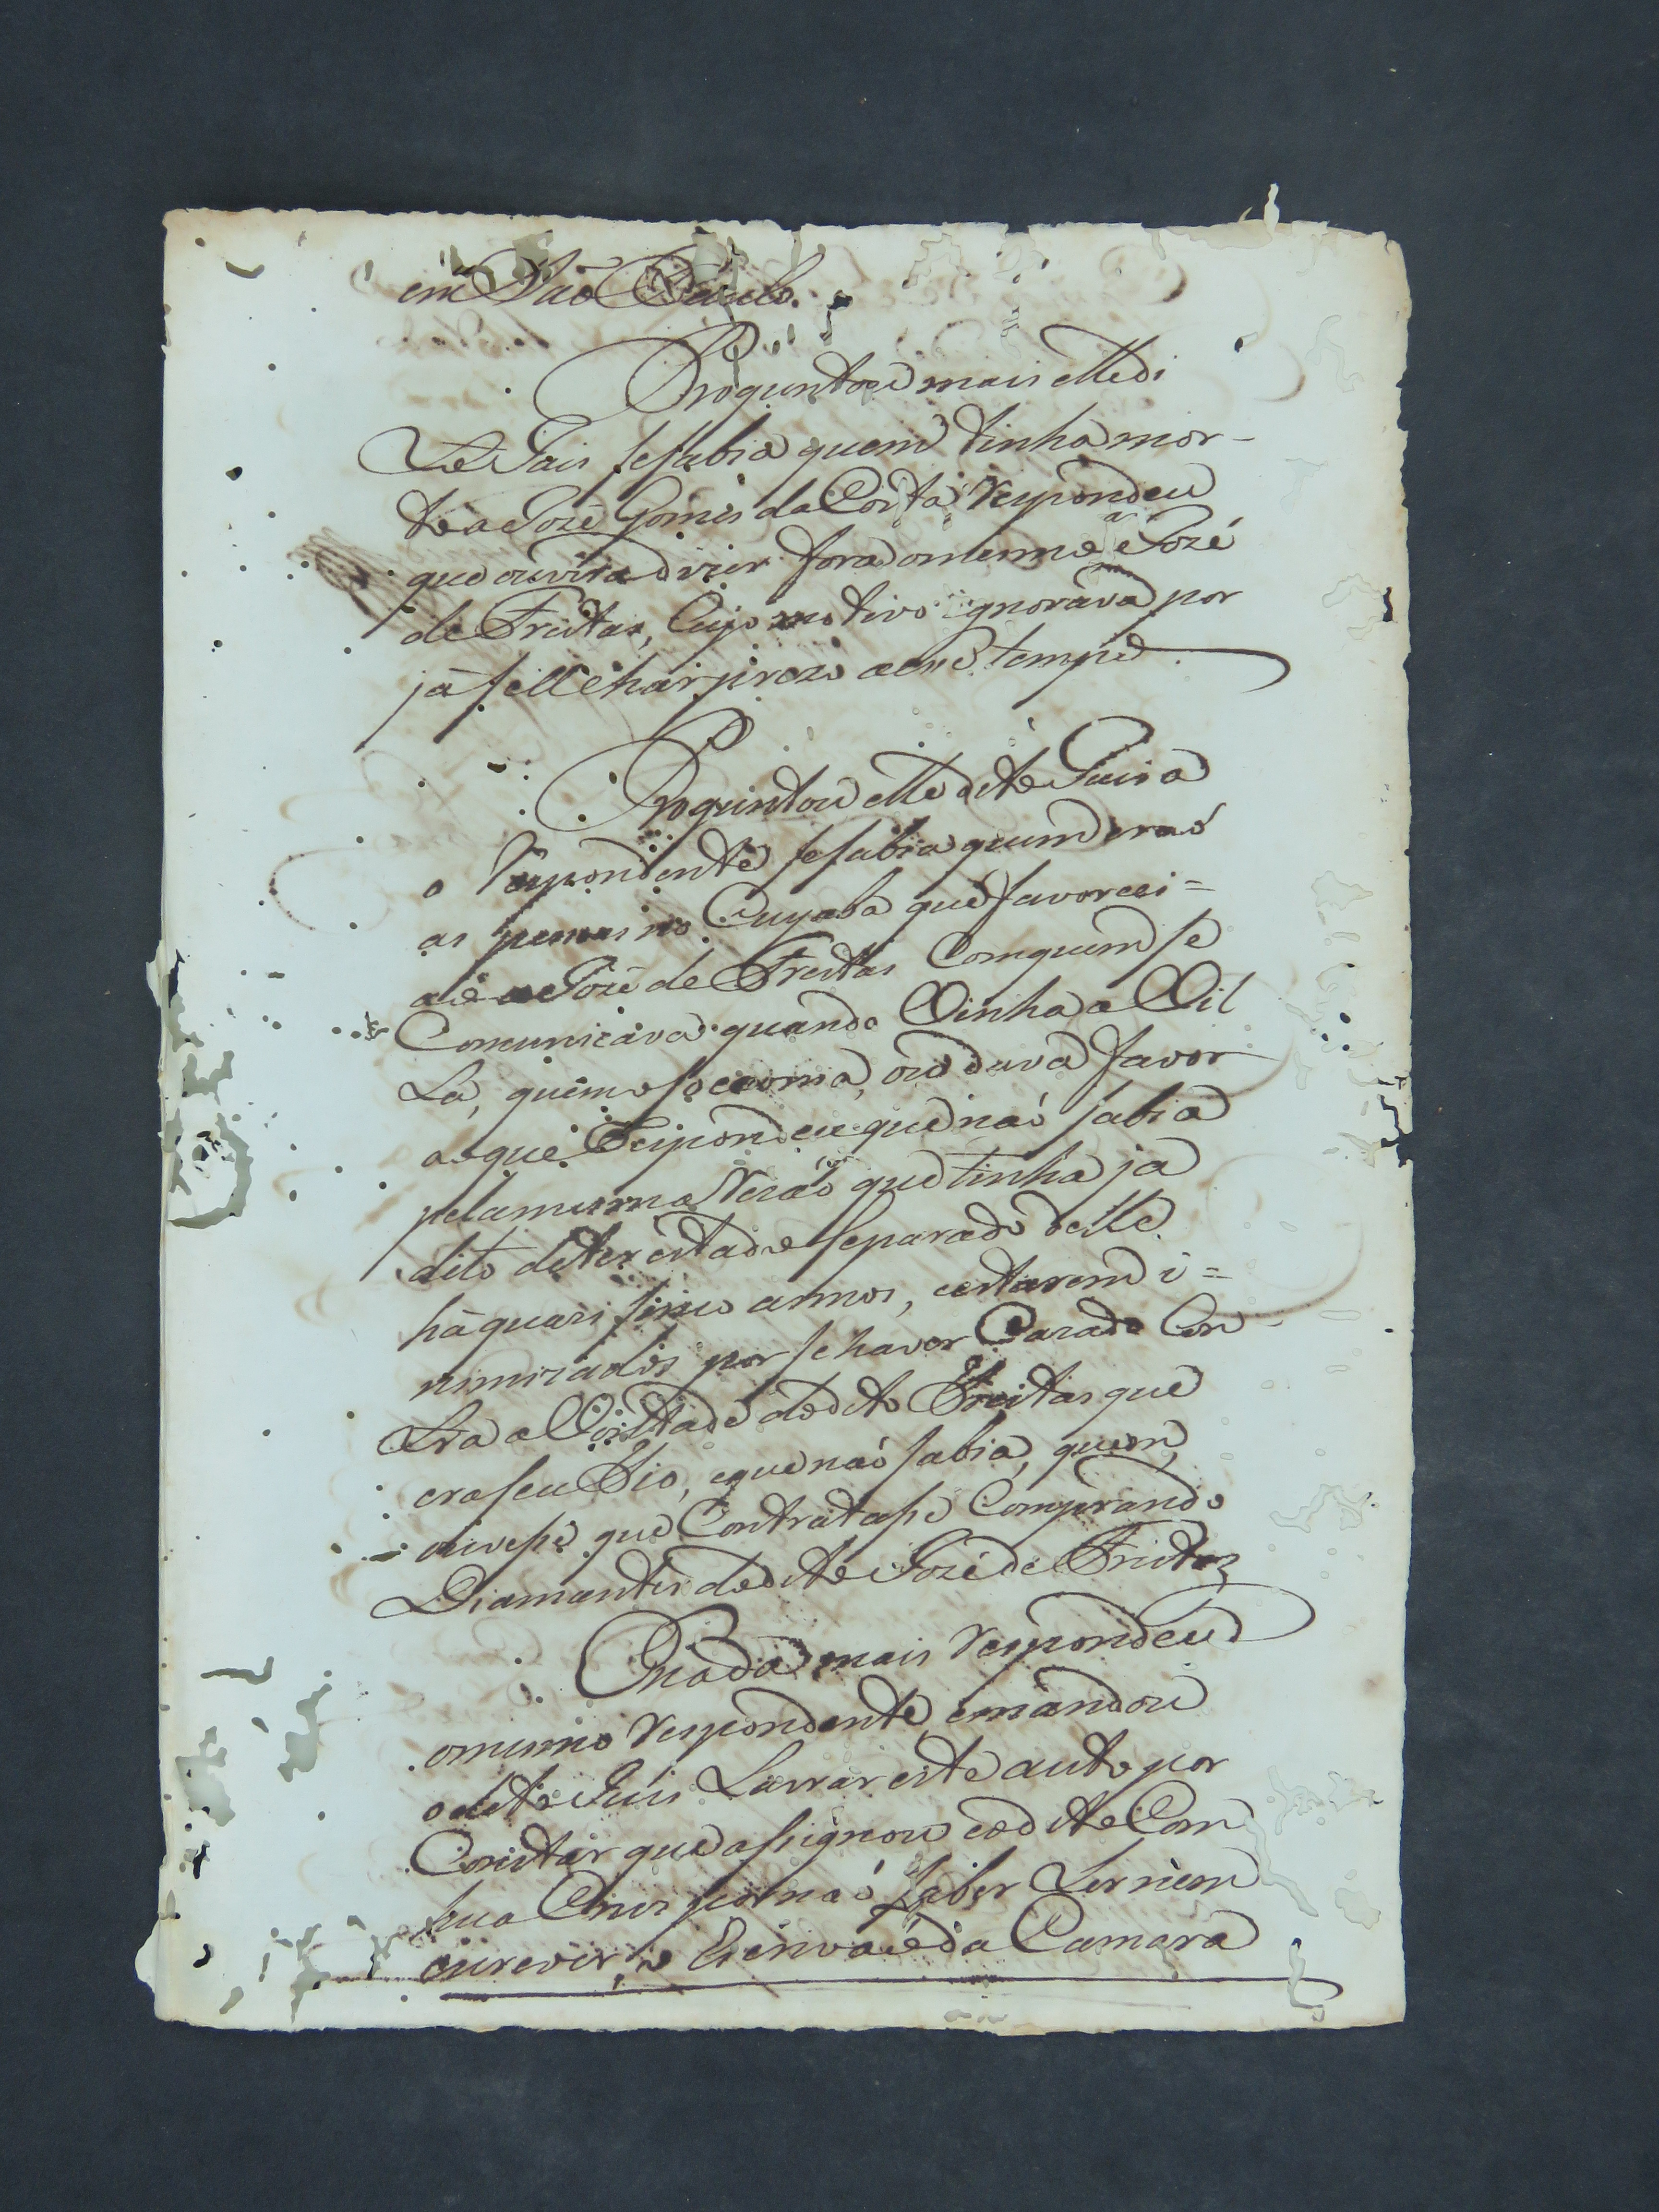 em Saõ Paulo.
Proguntou mais elle di
to Juis se sabia quem tinha mor-
to a Jozé Gomes da Costa Respondeu
que ouvira dizer fora o mesmo Jozé
de Freitas, Cujo motivo ignorava por
já se achar prezo a esse tempo
Proguntou elle dito Juis a
o Respondente se sabia quem eraõ
as pessoas no Cuyaba que favoreci=
aõ a Jozé de Freitas Com quem se
Comunicava quando Vinha a Vil
La, quem o socorria, ou dava favor
ao que Respondeu que naõ sabia
pela mesma Rezaõ que tinha ja
dito de ter estado separado delle
há quazi sinco annos, e estarem i=
nimizados por se haver Cazado Con
tra a Vontade do dito Freitas que
era seu Tio, e que naõ sabia, quem
ouvesse que Contratasse Comprando
Diamantes do dito Jozé de Freitas
E nada mais Respondeu
o mesmo Respondente, e mandou
o dito Juis Lavrar este auto por
Constar que assignou e o dito Com
hua Crus por naõ saber Ler nem
escrever, o Escrivaõ da Camara